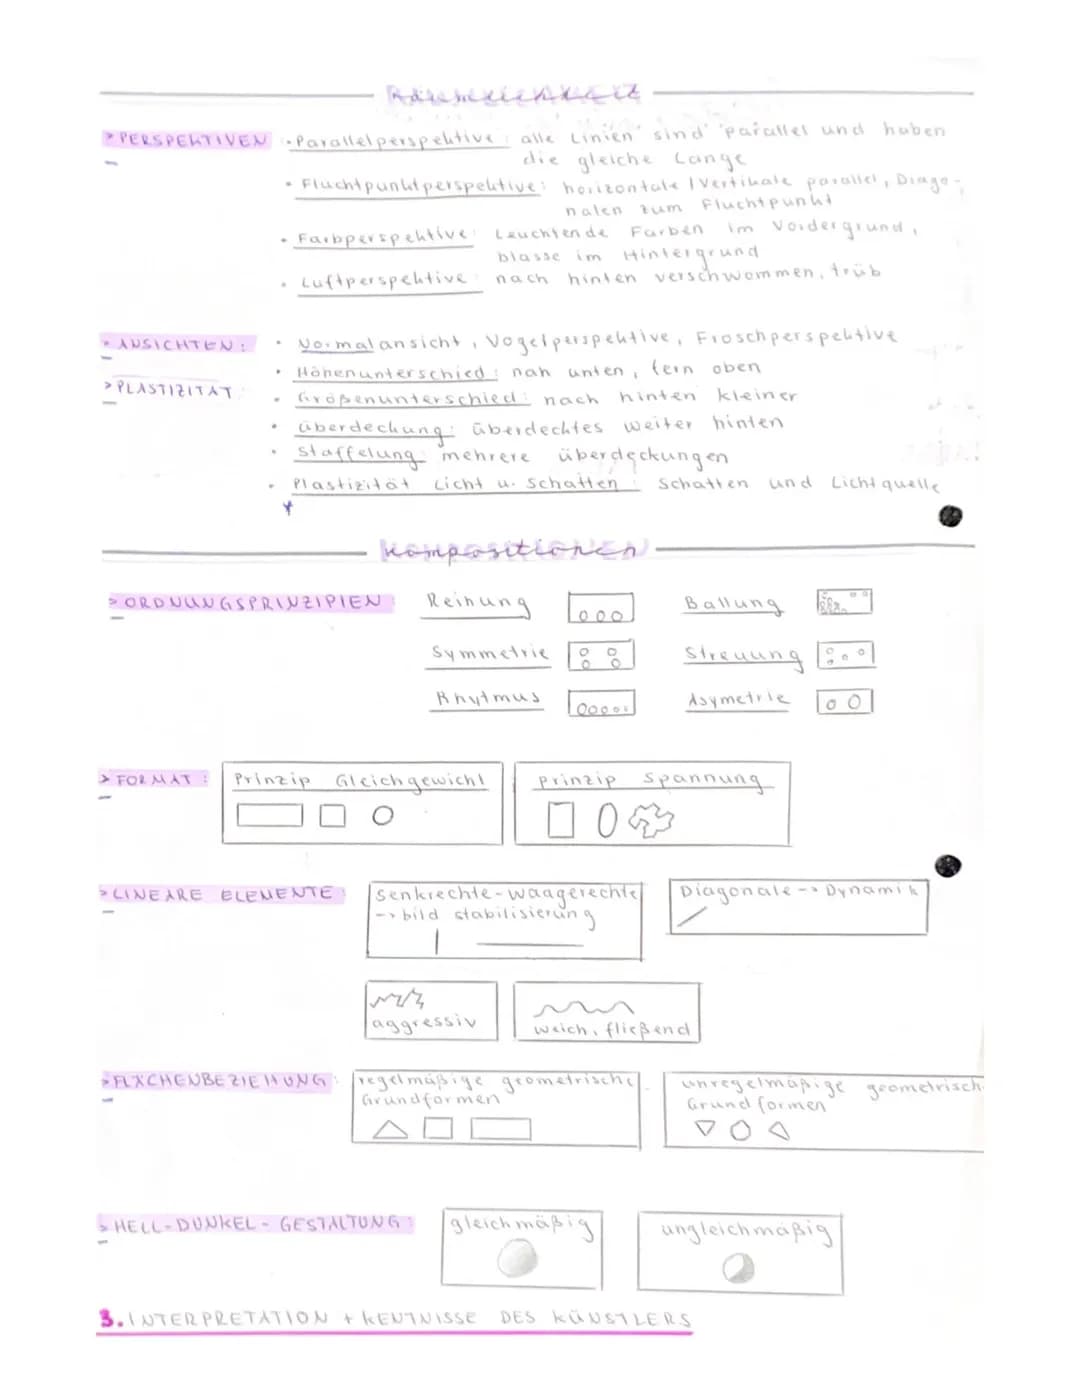 Räumlichkeit
> PERSPEKTIVEN • Parallelperspektive : alle Linien sind parallel und haben
die gleiche Länge
• Fluchtpunktperspektive : horizontale / Vertikale parallel, Diago-
nalen zum Fluchtpunkt
• Farbperspektive : Leuchtende Farben im Vordergrund,
blasse im Hintergrund
• Luftperspektive : nach hinten verschwommen, trüb
• ANSICHTEN : • Normalansicht, Vogelperspektive, Froschperspektive
• Höhenunterschied : nah unten, fern oben
> PLASTIZITÄT : • Größenunterschied : nach hinten kleiner
• Überdeckung : Überdecktes weiter hinten
• Staffelung : mehrere Überdeckungen
• Plastizität Licht u. Schatten : Schatten und Lichtquelle
Kompositionen
> ORDNUNGSPRINZIPIEN Reihung Ballung
Symmetrie Streuung
Rhytmus Asymetrie
> FORMAT : Prinzip Gleichgewicht Prinzip Spannung
> LINEARE ELEMENTE : Senkrechte-waagerechte Diagonale -> Dynamik
-> bild stabilisierung
aggressiv weich, fließend
> FLÄCHENBEZIEHUNG : regelmäßige geometrische unregelmäßige geometrisch
Grundformen Grundformen
> HELL-DUNKEL-GESTALTUNG : gleichmäßig ungleichmäßig
3. INTERPRETATION + KENTNISSE DES KÜNSTLERS